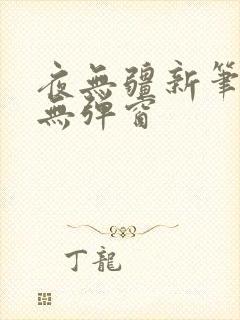 夜無疆新筆
無彈窗
丁龍